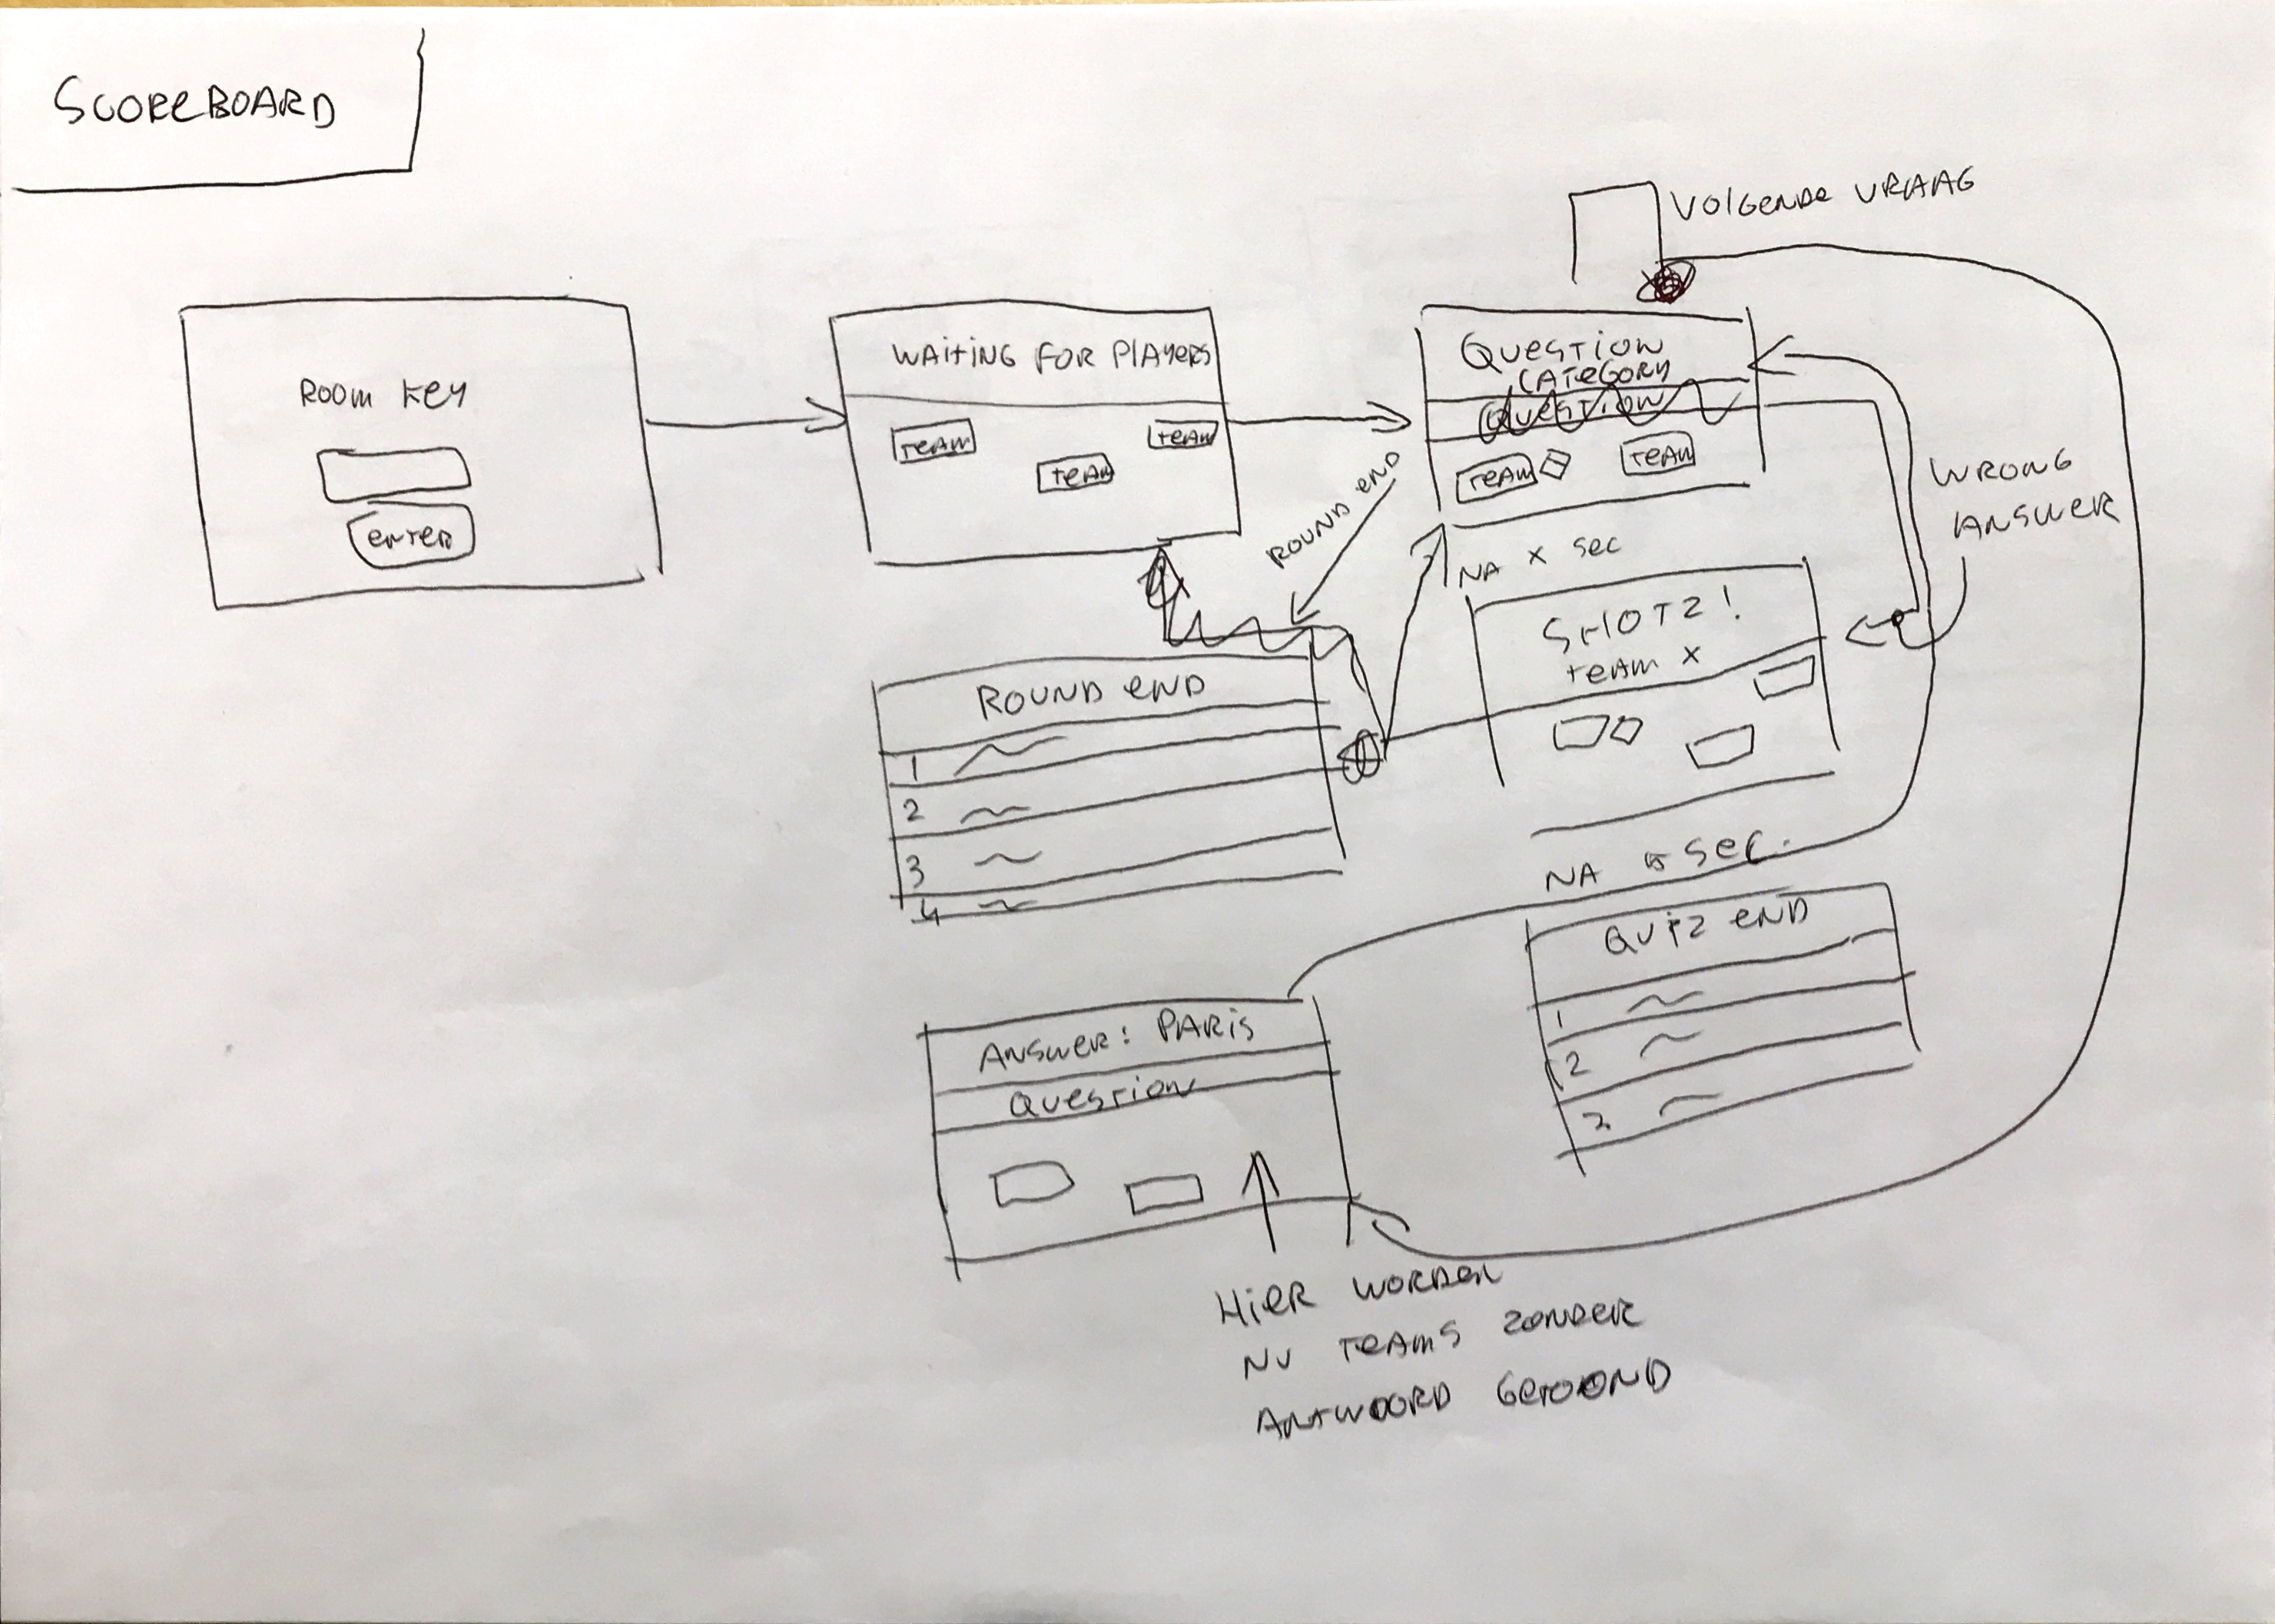 SCOREBOARD
VOLGENDE VRAAG
ROOM KEY
ENTER
WAITING FOR PLAYERS
TEAM
TEAM
TEAM
QUESTION
CATEGORY
QUESTION
TEAM
TEAM
ROUND END
WRONG
ANSWER
NA X SEC
SHOTZ!
TEAM X
ROUND END
1
2
3
4
NA SEC.
QUIZ END
1
2
3
ANSWER: PARIS
QUESTION
HIER WORDEN
NU TEAMS ZONDER
ANTWOORD GETOOND